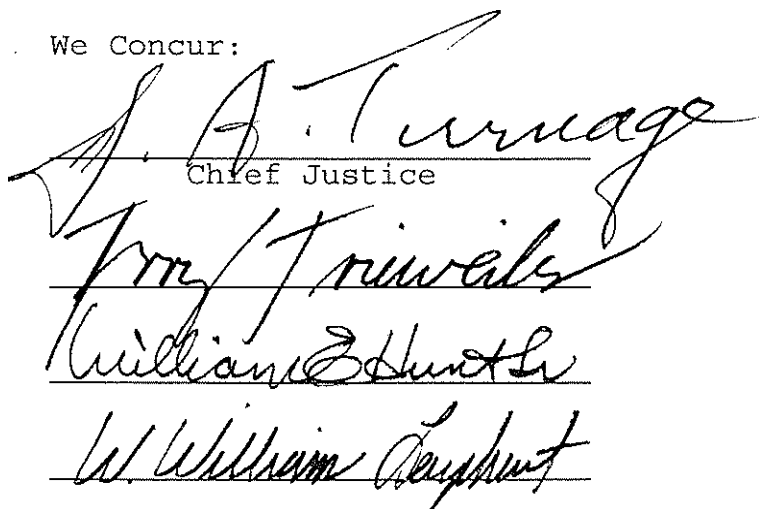 We Concur:
J. A. Turnage
Chief Justice
Terry Trieweiler
William E Hunt Sr
W. William Leaphart